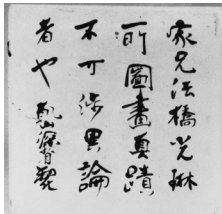 家兄法橋光琳
所圖畫真蹟
不可涉異論
者也 乾山深省證